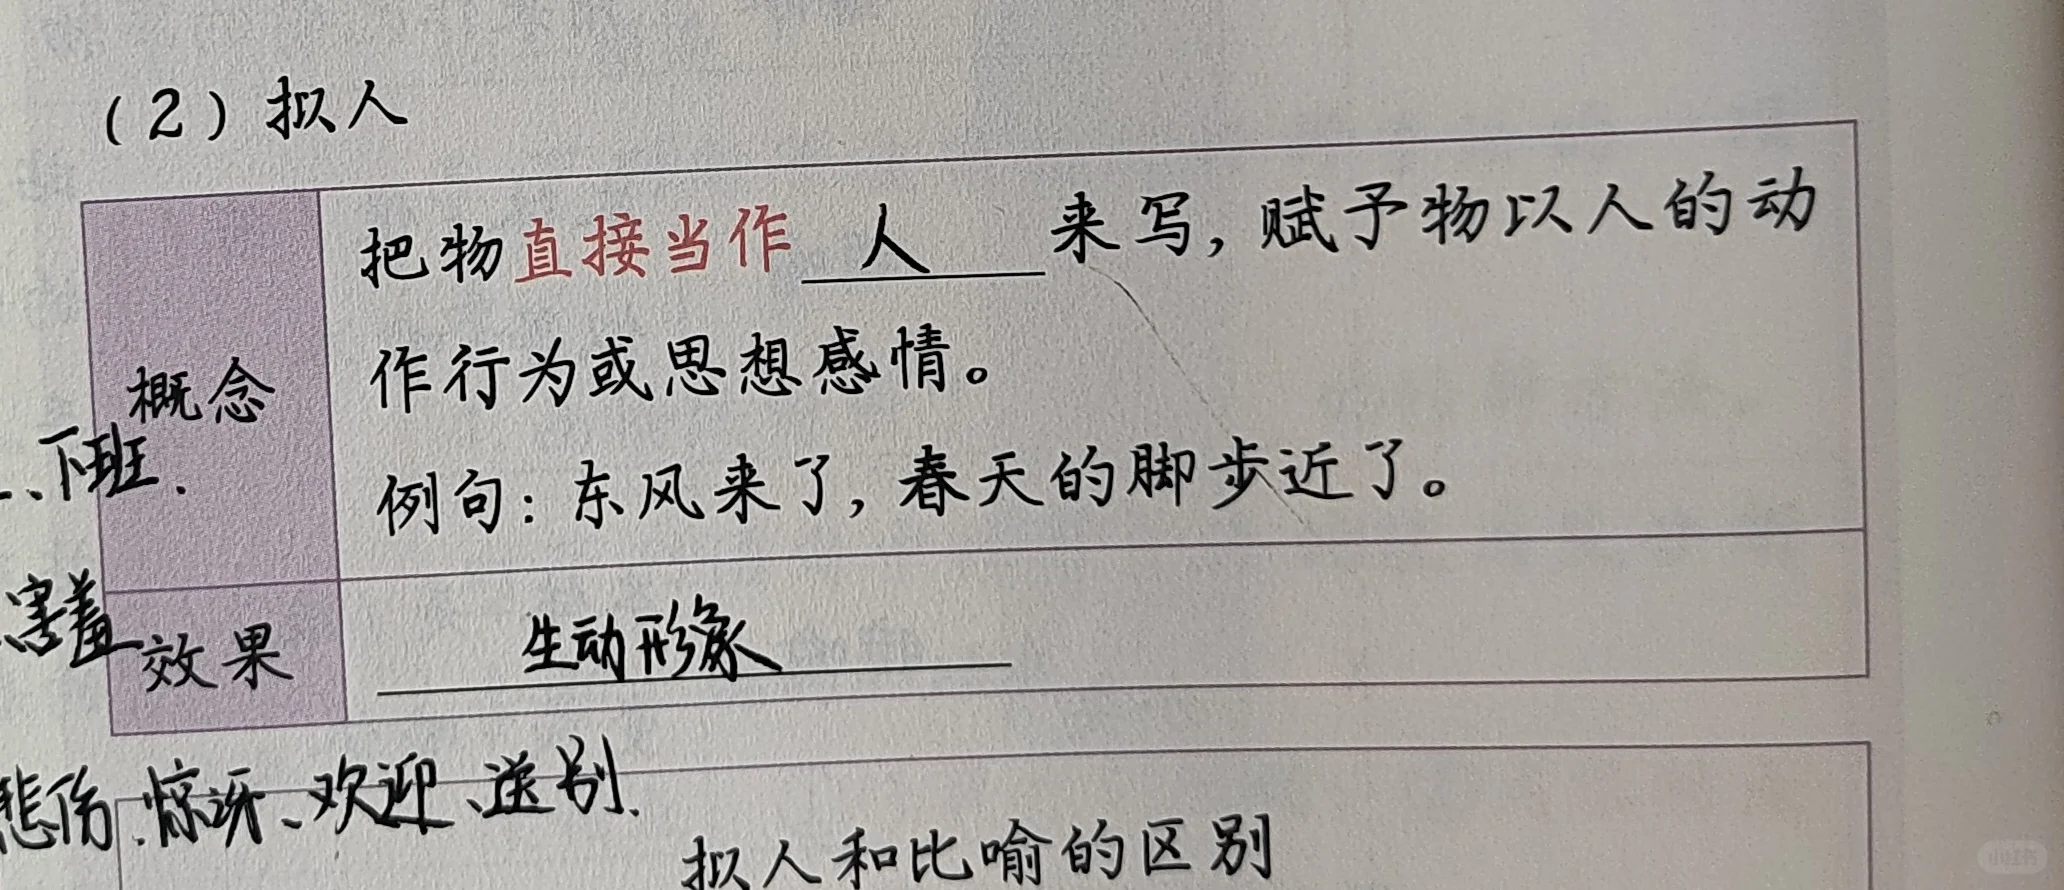 （2）拟人
把物直接当作 人 来写，赋予物以人的动
作行为或思想感情。
概念
、下班、
例句：东风来了，春天的脚步近了。
害羞
效果
生动形象
悲伤、惊讶、欢迎、送别、
拟人和比喻的区别
小红书